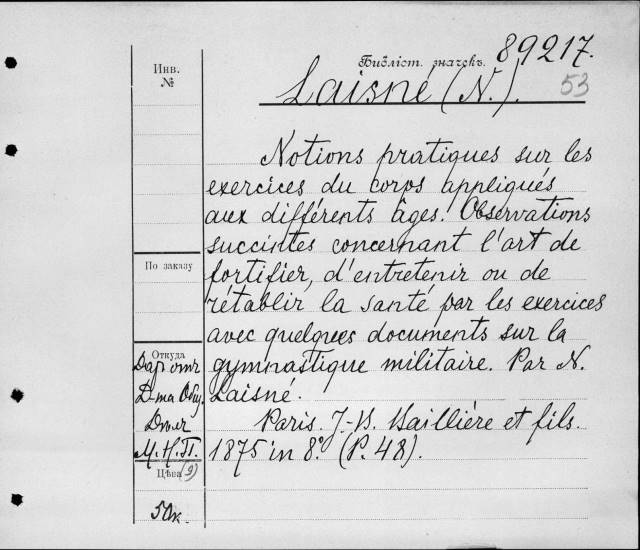 Инв. №
Библіот. значекъ. 89217.
Laisné (N.). 53
Notions pratiques sur les
exercices du corps appliqués
aux différents âges. Observations
succintes concernant l'art de
fortifier, d'entretenir ou de
rétablir la santé par les exercices
avec quelques documents sur la
gymnastique militaire. Par N.
Laisné.
Paris. J.-B. Baillière et fils.
1875 in 8º. (P. 48).
По заказу
Откуда
Даръ отъ
Д-та Общ.
Дѣлъ
М.Н.П.
Цѣна (9)
50к.